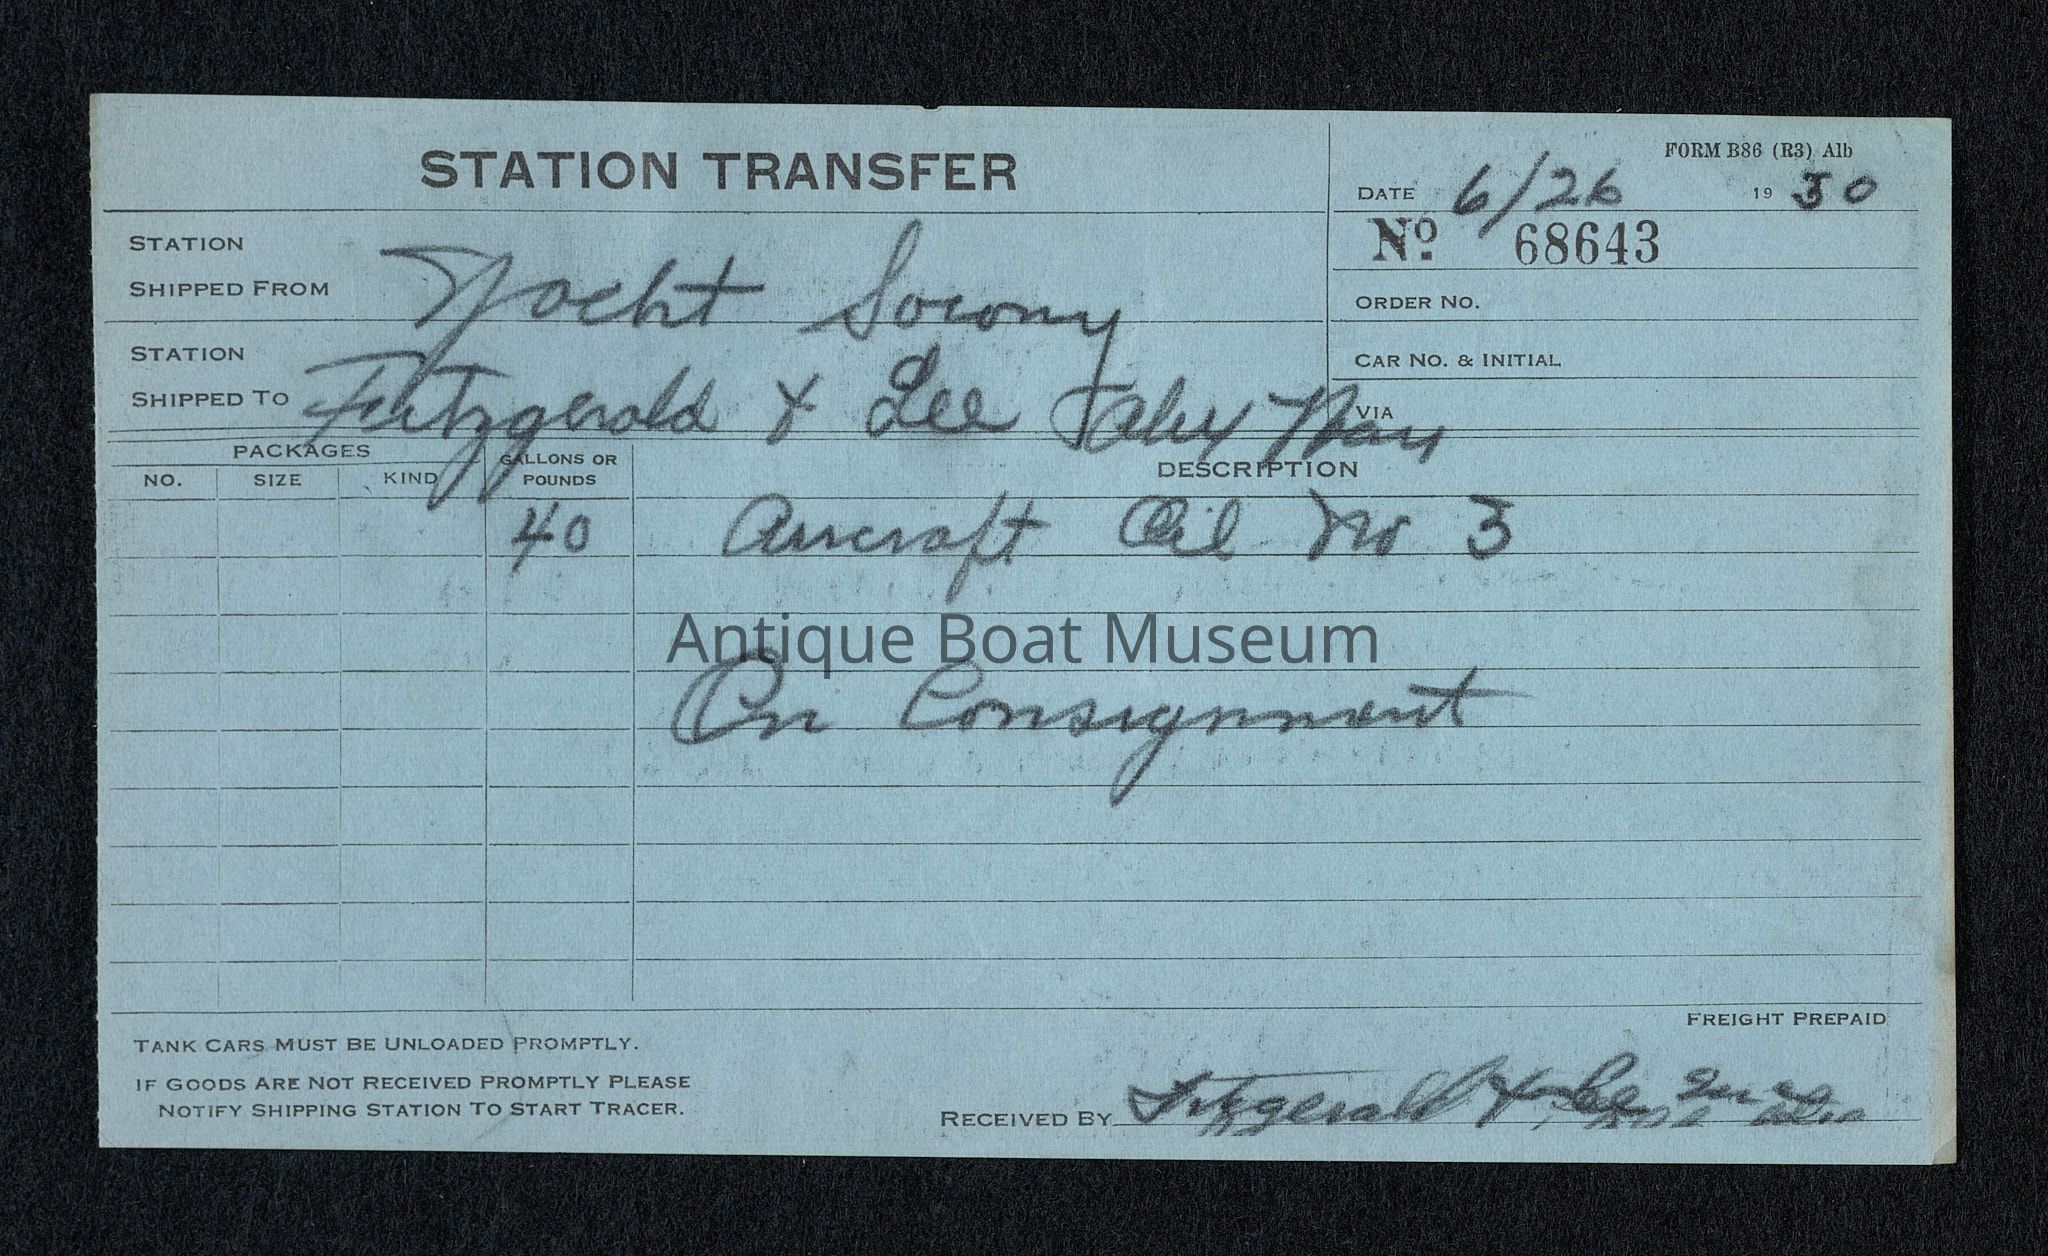 FORM B86 (R3) Alb
STATION TRANSFER
DATE 6/26 19 30
No 68643
STATION
SHIPPED FROM Yacht Socony
ORDER NO.
STATION
SHIPPED TO Fitzgerald & Lee Alex Bay
CAR NO. & INITIAL
VIA
PACKAGES
NO. SIZE KIND GALLONS OR POUNDS DESCRIPTION
40 Aircraft Oil No 3
Antique Boat Museum
On Consignment
FREIGHT PREPAID
TANK CARS MUST BE UNLOADED PROMPTLY.
IF GOODS ARE NOT RECEIVED PROMPTLY PLEASE
NOTIFY SHIPPING STATION TO START TRACER.
RECEIVED BY Fitzgerald & Lee